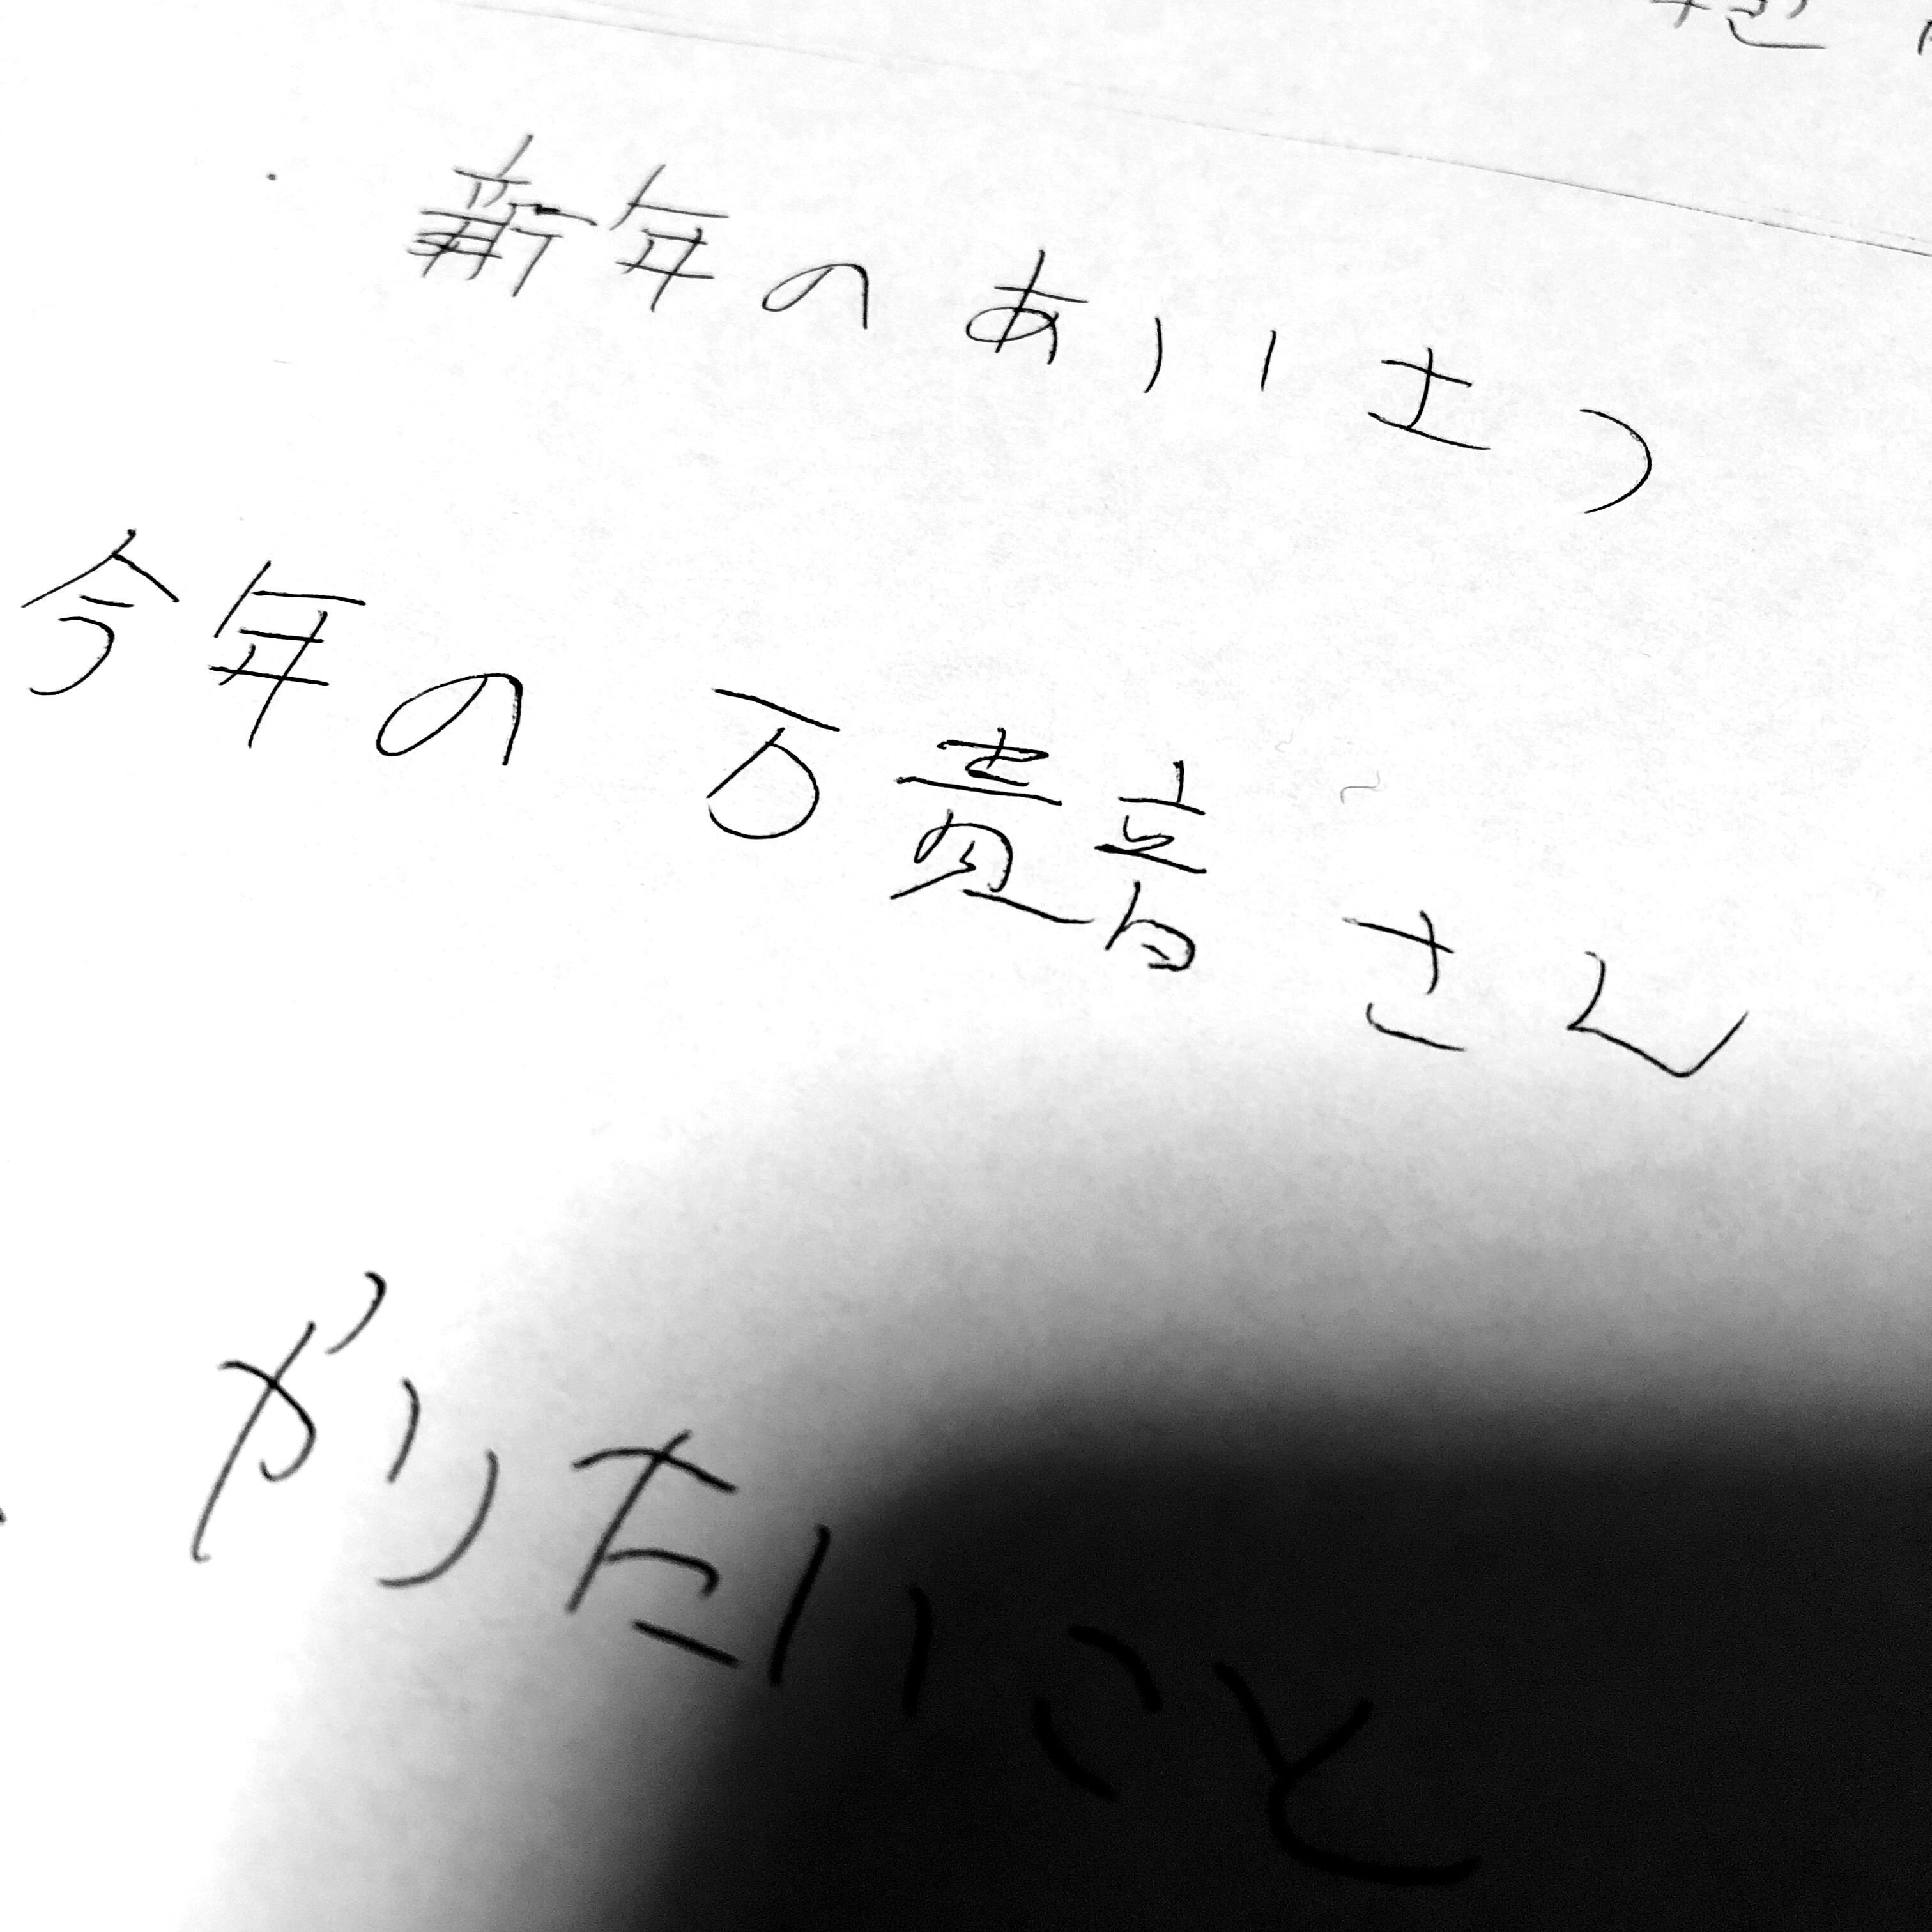 新年のあいさつ
今年の
さん
やりたいこと